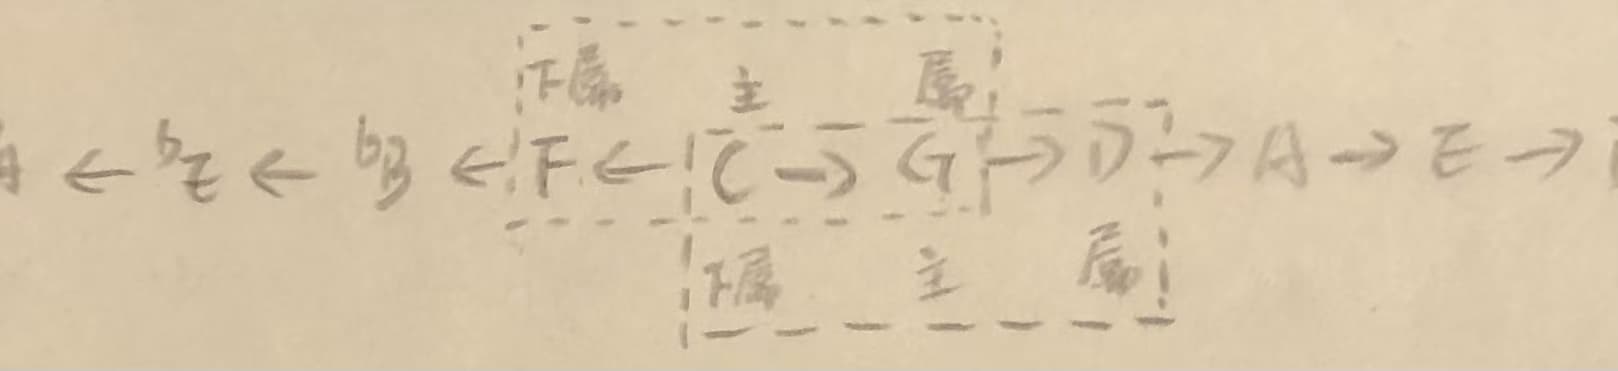 下属 主 属
← ♭E ← ♭B ← F ← C → G → D → A → E →
下属 主 属